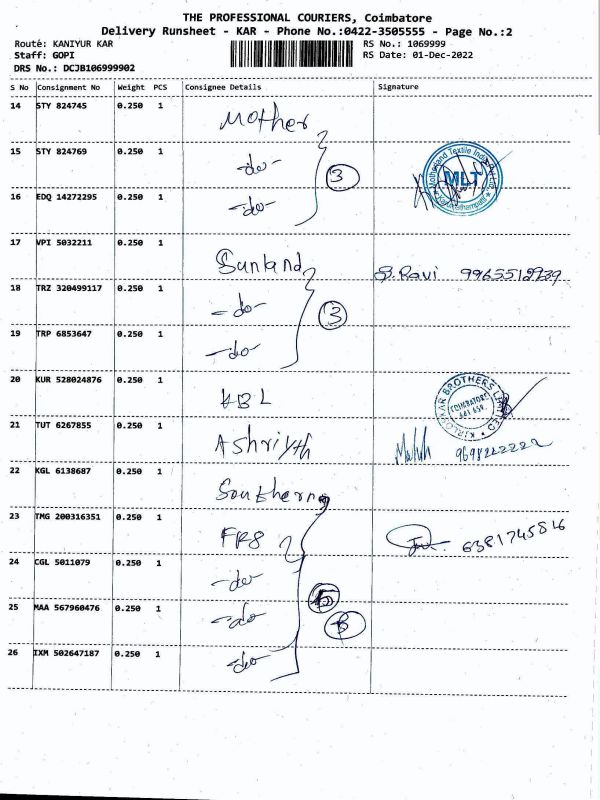 THE PROFESSIONAL COURIERS, Coimbatore
Delivery Runsheet - KAR - Phone No.:0422-3505555 - Page No.:2
Route: KANIYUR KAR RS No.: 1069999
Staff: GOPI RS Date: 01-Dec-2022
DRS No.: DCJB106999902
S No Consignment No Weight PCS Consignee Details Signature
14 STY 824745 0.250 1 Mother
15 STY 824769 0.250 1 -do-
3
MLT
16 EDQ 14272295 0.250 1 -do-
17 VPI 5032211 0.250 1 Sunland S.Ravi 9965512939
18 TRZ 320499117 0.250 1 -do-
3
19 TRP 6853647 0.250 1 -do-
20 KUR 528024876 0.250 1 KBL
KIRLOSKAR BROTHERS LIMITED
COIMBATORE
21 TUT 6267855 0.250 1 Ashriyth 9698222222
22 KGL 6138687 0.250 1 Southern
23 TMG 200316351 0.250 1 FRS 6381745816
24 CGL 5011079 0.250 1 -do-
25 MAA 567960476 0.250 1 -do-
26 IXM 502647187 0.250 1 -do-